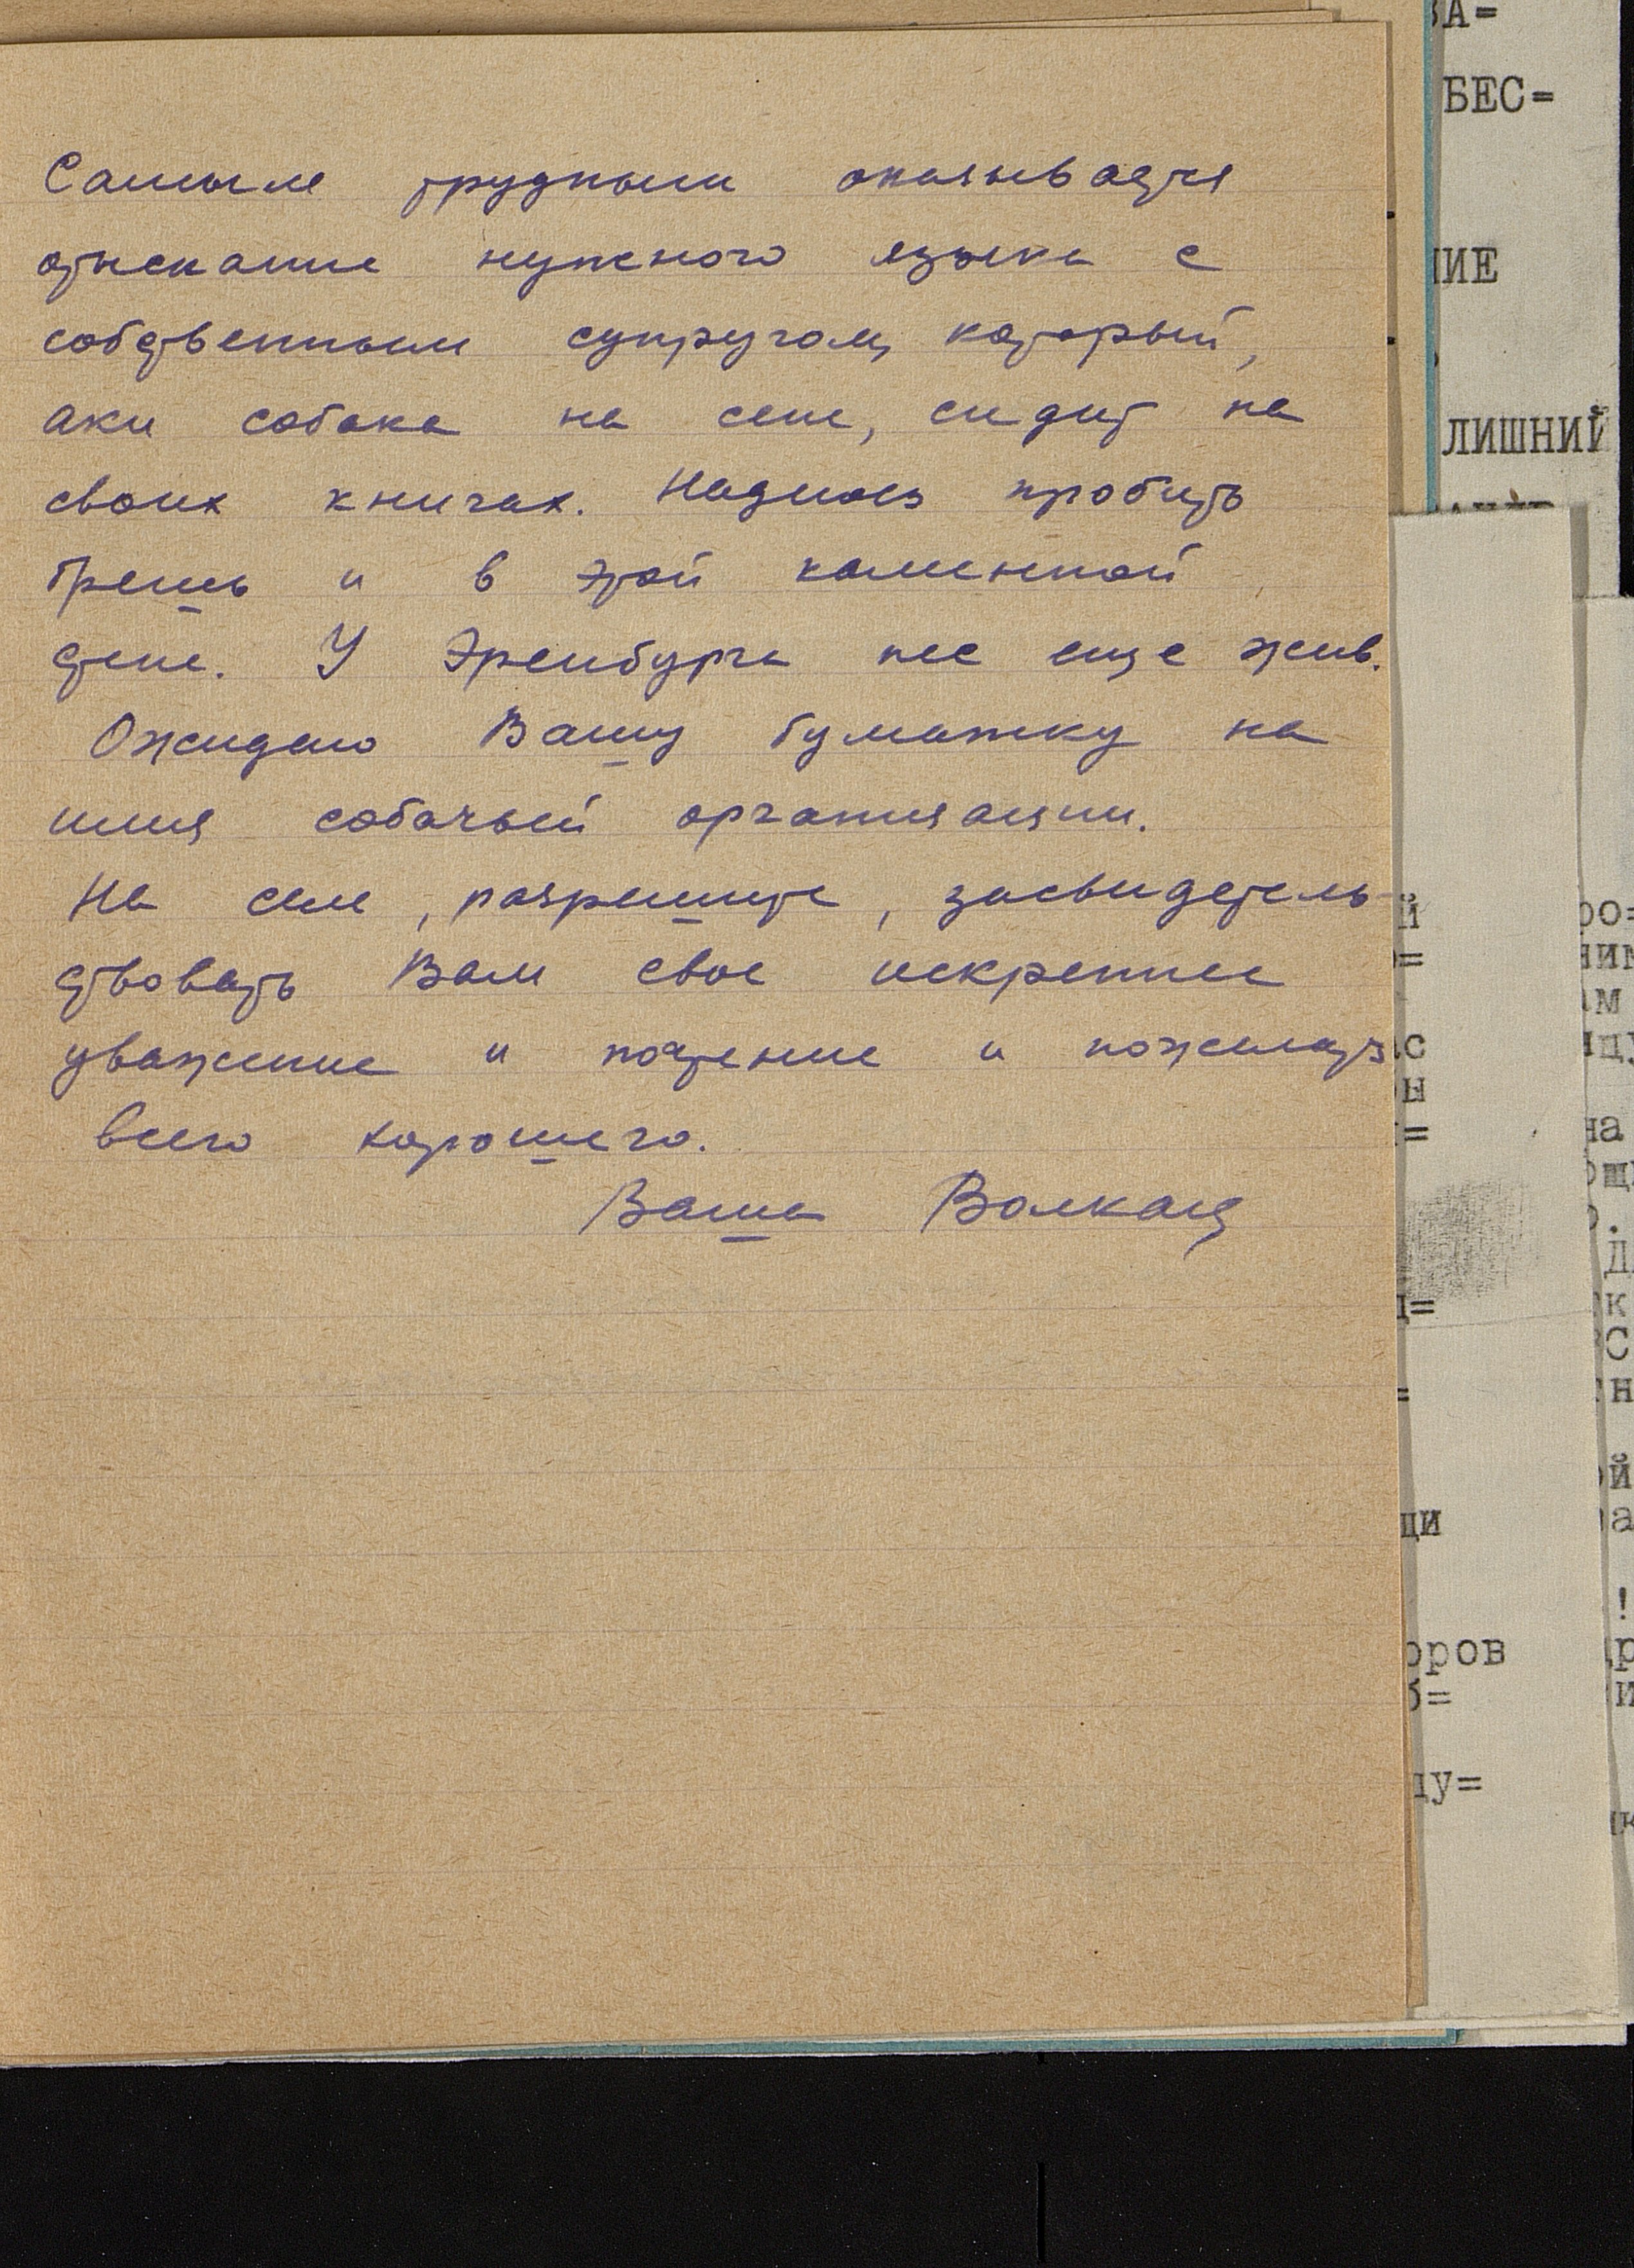 Самым трудным оказывается
отыскание нужного языка с
собственным супругом, который,
аки собака на сене, сидит на
своих книгах. Надеюсь пробить
брешь и в этой каменной
стене. У Эренбурга пес еще жив.
Ожидаю Вашу бумажку на
имя собачьей организации.
На сем, разрешите, засвидетель-
ствовать Вам свое искреннее
уважение и почтение и пожелать
всего хорошего.
Ваша
БЕС=
ЛИШНИЙ